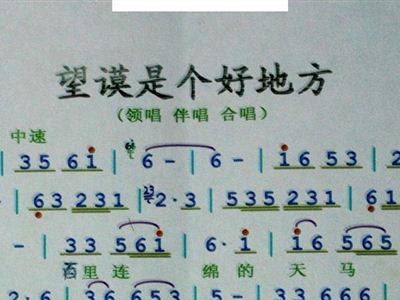 望谟是个好地方
(领唱 伴唱 合唱)
中速
| 35 61 | 6 - | 6 - | 16 53 | 2
- | 63 231 | 2·3 | 535 231 | 61
- | 33 561 | 6·1 | 16 565
百里连 绵的天马
2·6 | 36 653 |